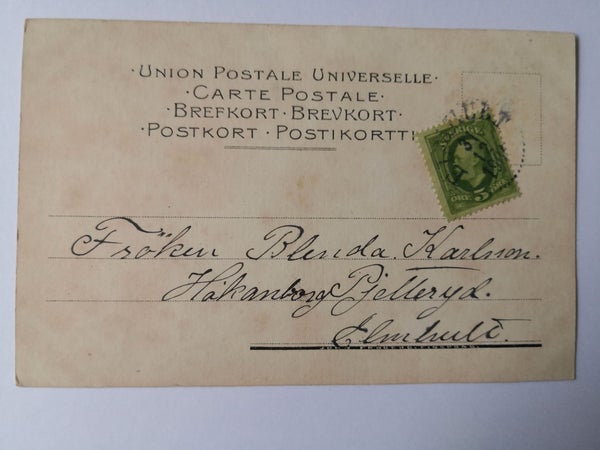 ·UNION POSTALE UNIVERSELLE·
·CARTE POSTALE·
·BREFKORT·BREVKORT·
·POSTKORT·POSTIKORTTI
SVERIGE
5
ÖRE
Fröken Blenda Karlsson.
Håkanborg Pjetteryd.
Elmhult.